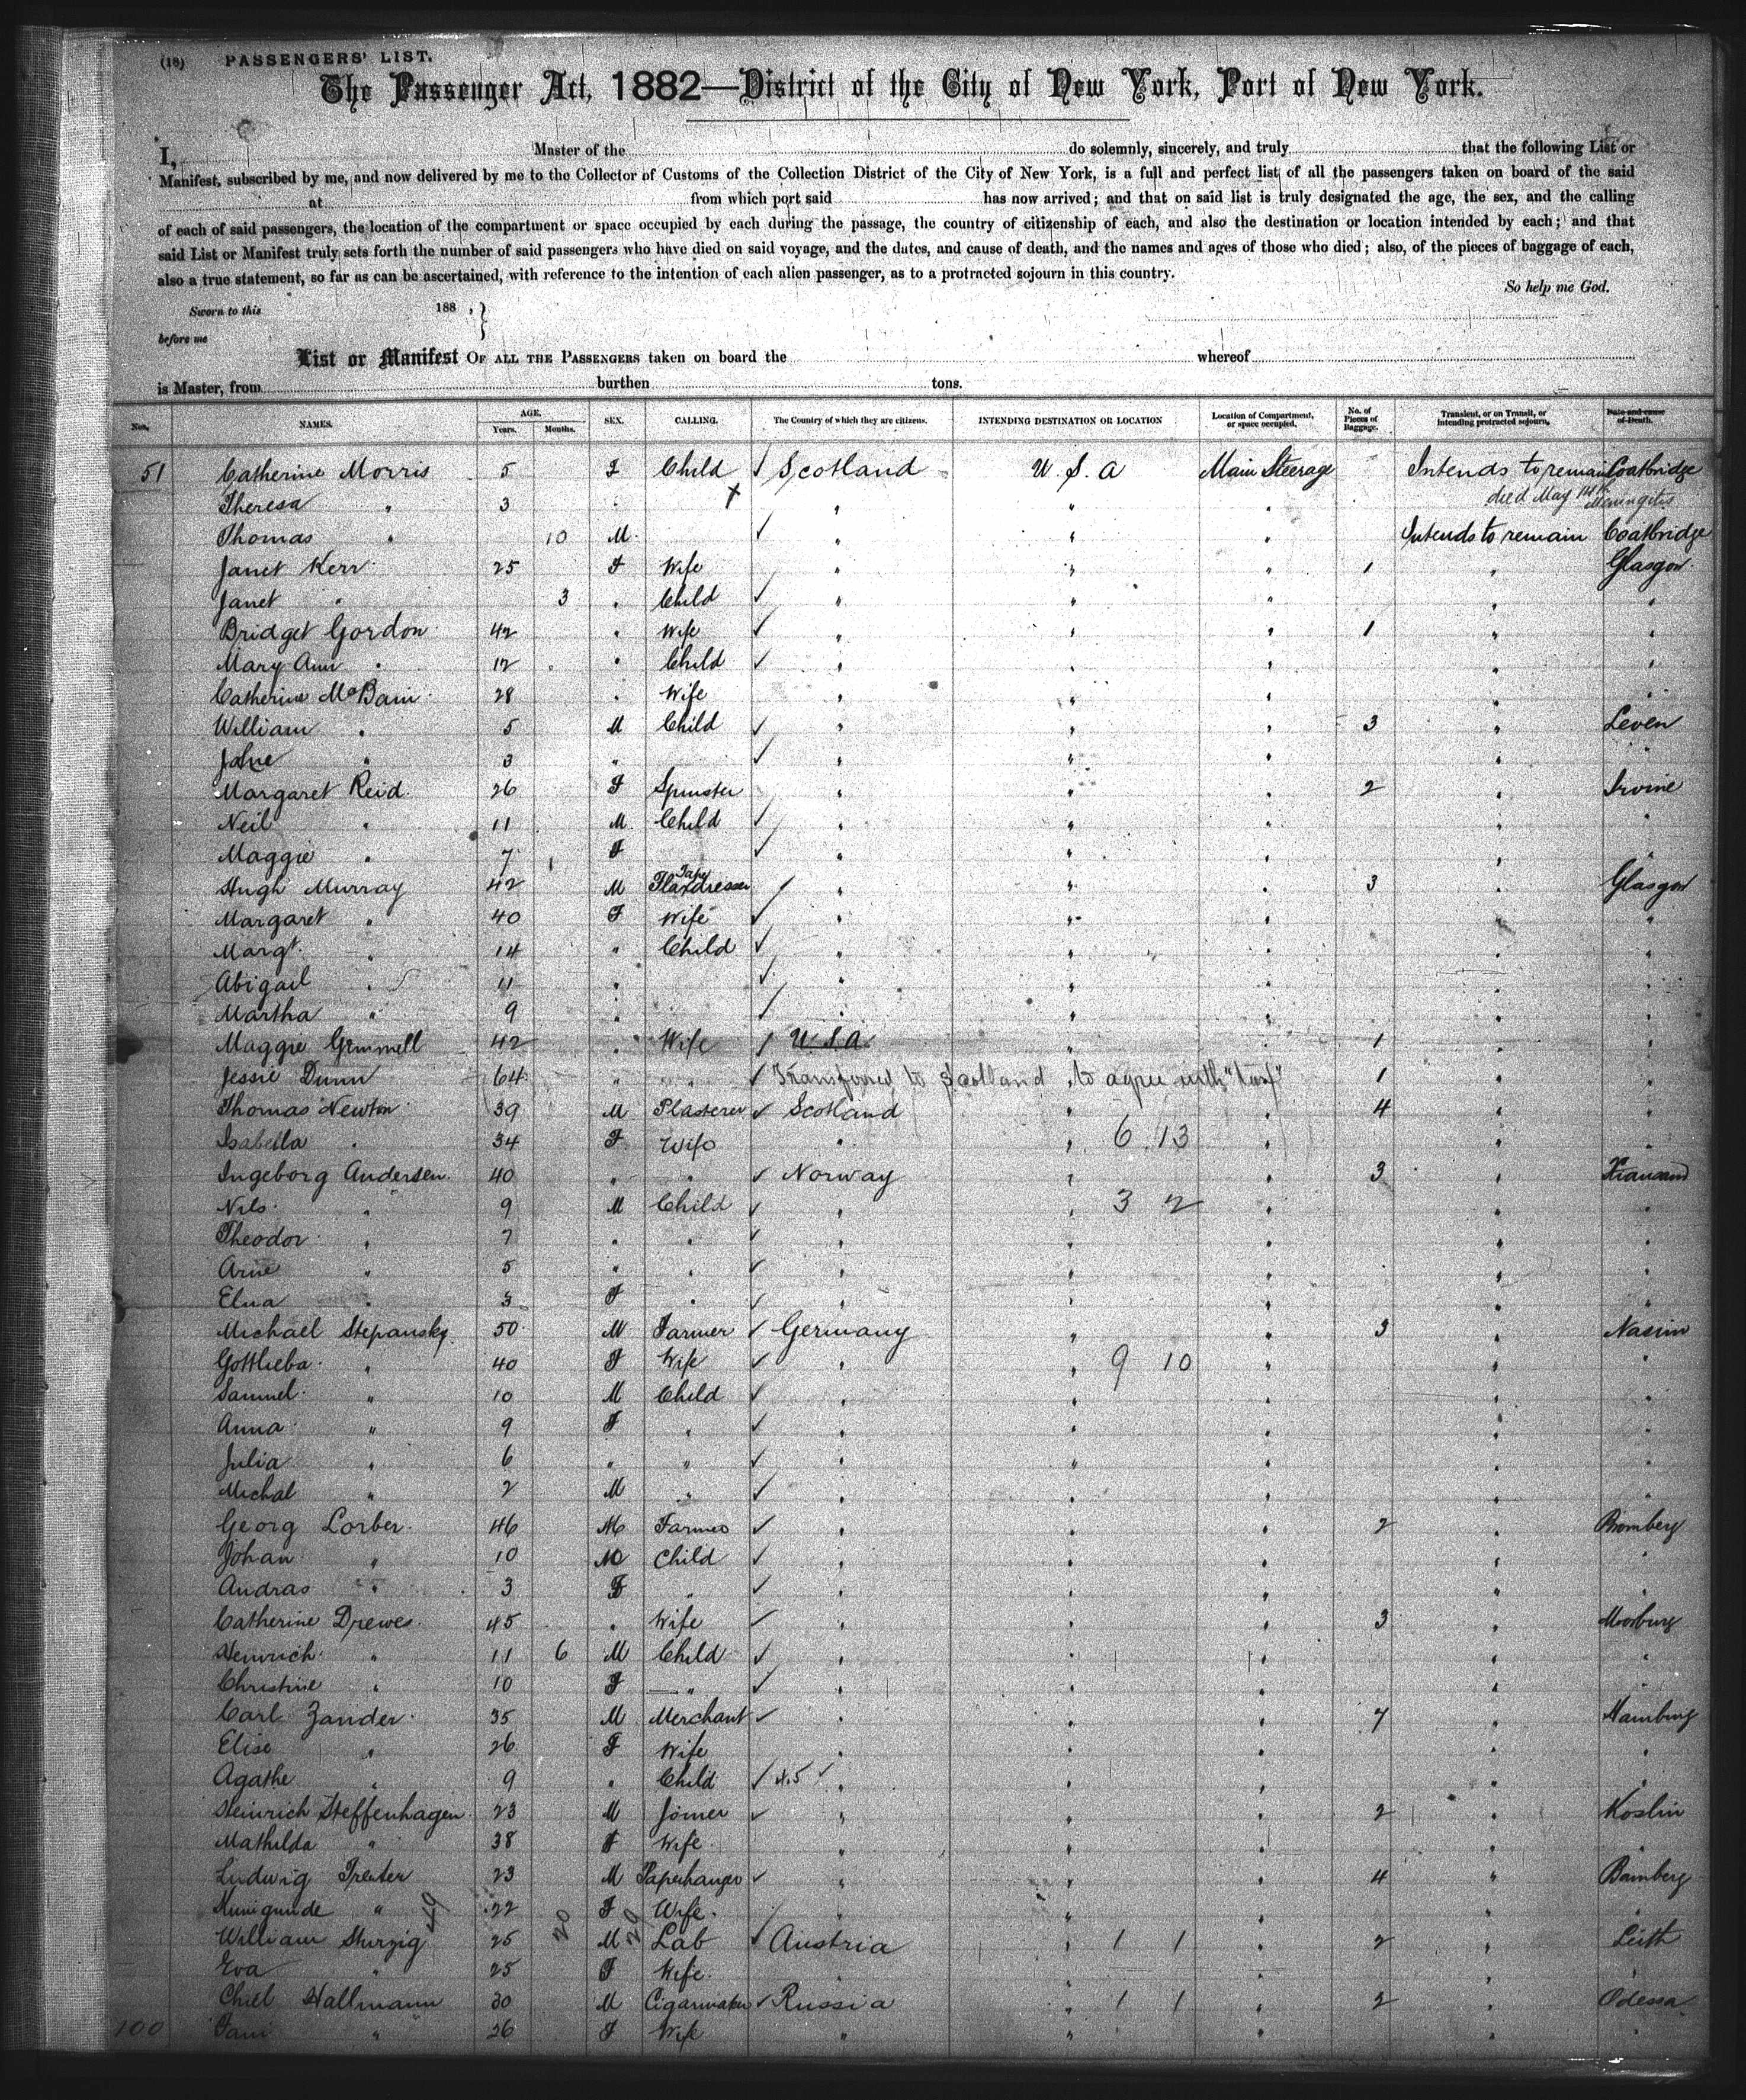 (18) PASSENGERS' LIST.
The Passenger Act, 1882—District of the City of New York, Port of New York.
I, Master of the do solemnly, sincerely, and truly that the following List or
Manifest, subscribed by me, and now delivered by me to the Collector of Customs of the Collection District of the City of New York, is a full and perfect list of all the passengers taken on board of the said
at from which port said has now arrived; and that on said list is truly designated the age, the sex, and the calling
of each of said passengers, the location of the compartment or space occupied by each during the passage, the country of citizenship of each, and also the destination or location intended by each; and that
said List or Manifest truly sets forth the number of said passengers who have died on said voyage, and the dates, and cause of death, and the names and ages of those who died; also, of the pieces of baggage of each,
also a true statement, so far as can be ascertained, with reference to the intention of each alien passenger, as to a protracted sojourn in this country.
So help me God.
Sworn to this 188 , }
before me
List or Manifest OF ALL THE PASSENGERS taken on board the whereof
is Master, from burthen tons.
Nos. NAMES. AGE. Years. Months. SEX. CALLING. The Country of which they are citizens. INTENDING DESTINATION OR LOCATION Location of Compartment, or space occupied. No. of Pieces of Baggage. Transient, or on Transit, or intending protracted sojourn. Date and cause of Death.
51 Catherine Morris 5 F Child ✓ Scotland U.S.A Main Steerage Intends to remain Coatbridge
Theresa " 3 " x " " " died May 14th Meningitis
Thomas " 10 M. ✓ " " " Intends to remain Coatbridge
Janet Kerr 25 F Wife " " " 1 " Glasgow
Janet " 3 " Child ✓ " " " " "
Bridget Gordon 42 " Wife ✓ " " " 1 " "
Mary Ann " 12 " Child ✓ " " " " "
Catherine McBain 28 " Wife " " " " "
William " 5 M Child ✓ " " " 3 " Leven
" 3 " ✓ " " " " "
Margaret Reid 26 F Spinster " " " 2 " Irvine
Neil " 11 M. Child ✓ " " " " "
Maggie " 7 F ✓ " " " " "
Hugh Murray 42 M Flaxdresser ✓ " " " 3 " Glasgow
Margaret " 40 F Wife ✓ " " " " "
Margt. " 14 " Child ✓ " " " " "
Abigail " 11 " ✓ " " " " "
Martha " 9 " ✓ " " " " "
Maggie Gemmell 42 " Wife ✓ U.S.A. " " 1 " "
Jessie Dunn 64 " " ✓ Transferred to Scotland to agree with " " 1 " "
Thomas Newton 39 M Plasterer ✓ Scotland " " 4 " "
Isabella " 34 F Wife " " 6 13 " " "
Ingeborg Andersen 40 " " ✓ Norway " " 3 "
Nils " 9 M Child ✓ " " 3 2 " " "
Theodor " 7 " " ✓ " " " " "
Arne " 5 " " ✓ " " " " "
Elna " 3 F " ✓ " " " " "
Michael Stepansky 50 M Farmer ✓ Germany " " 3 "
Gottlieba " 40 F Wife ✓ " " 9 10 " " "
Samuel " 10 M Child ✓ " " " " "
Anna " 9 F " ✓ " " " " "
Julia " 6 " " ✓ " " " " "
Michal " 2 M " ✓ " " " " "
Georg Lorber 46 M Farmer ✓ " " " 2 " Bromberg
Johan " 10 M Child ✓ " " " " "
Andras " 3 F " ✓ " " " " "
Catherine Drewes 45 " Wife ✓ " " " 3 "
Heinrich " 11 6 M Child ✓ " " " " "
Christine " 10 F " ✓ " " " " "
Carl Zander 35 M Merchant ✓ " " " 7 " Hamburg
Elise " 26 F Wife " " " " "
Agathe " 9 " Child ✓ 45 ✓ " " " " "
Heinrich Steffenhagen 23 M Joiner ✓ " " " 2 " Koslin
Mathilda " 38 F Wife " " " " "
Ludwig 23 M Paperhanger ✓ " " " 4 " Bamberg
Kunigunde " 22 F Wife " " " " "
49 20 29
William 25 M Lab ✓ Austria " 1 1 " 2 " Leith
Eva " 25 F Wife " " " " "
Hallmann 30 M Cigarmaker ✓ Russia " 1 1 " 2 " Odessa
100 " 26 F Wife " " " " "